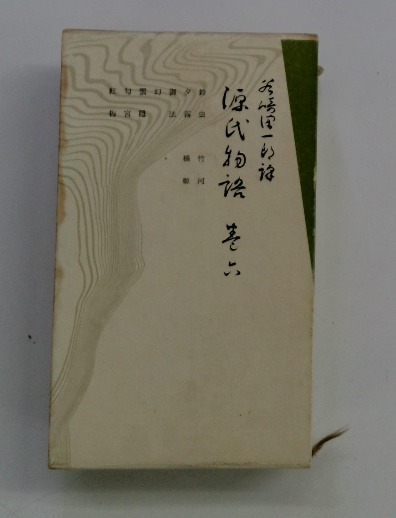 谷崎潤一郎訳
源氏物語 巻六
鈴虫
夕霧
御法
幻
雲隠
匂宮
紅梅
竹河
橋姫